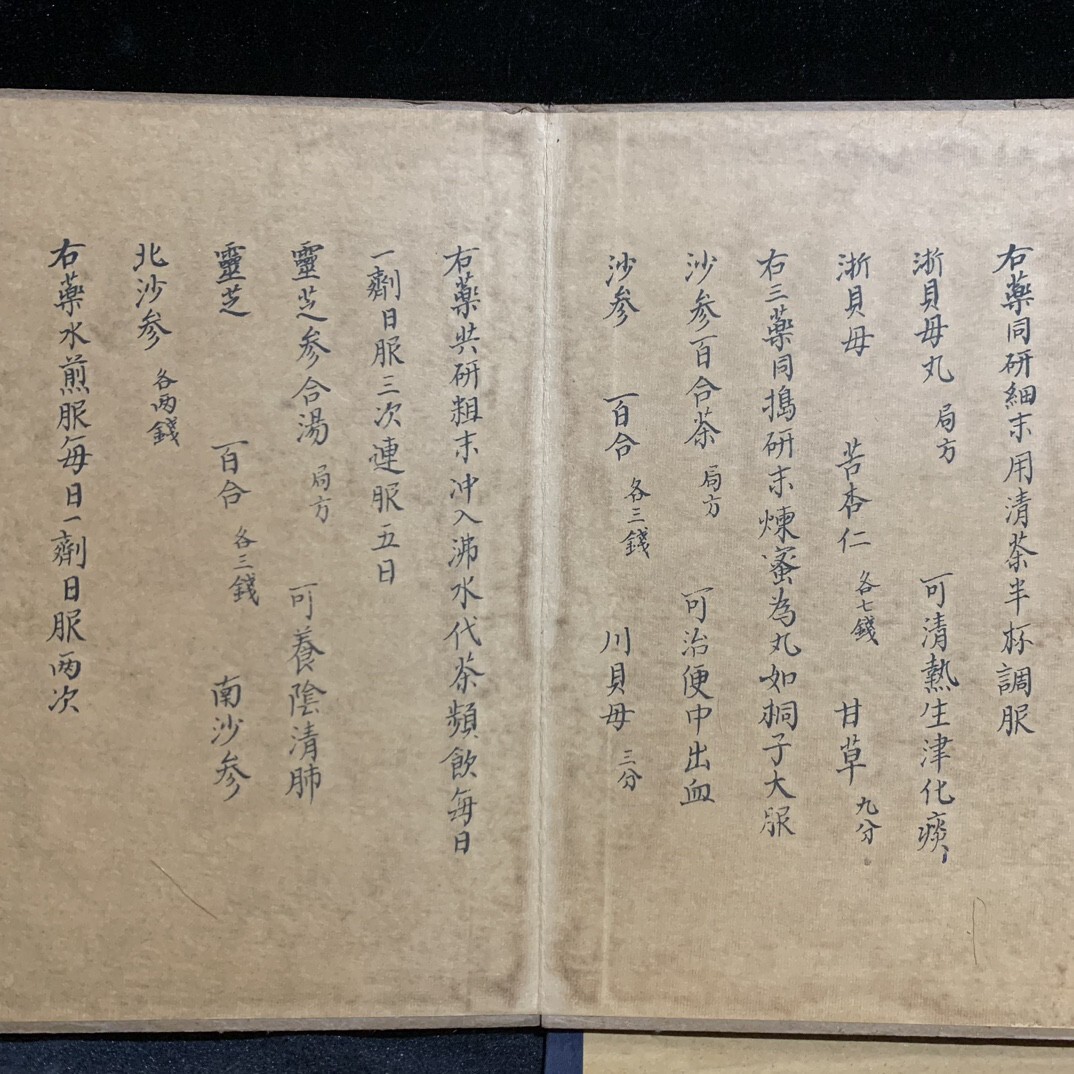 右藥同研細末用清茶半杯調服
浙貝母丸 局方 可清熱生津化痰
浙貝母 苦杏仁 各七錢 甘草 九分
右三藥同搗研末煉蜜為丸如桐子大服
沙参百合茶 局方 可治便中出血
沙参 百合 各三錢 川貝母 三分
右藥共研粗末冲入沸水代茶頻飲每日
一劑日服三次連服五日
靈芝参合湯 局方 可養陰清肺
靈芝 百合 各三錢 南沙参
北沙参 各两錢
右藥水煎服每日一劑日服两次